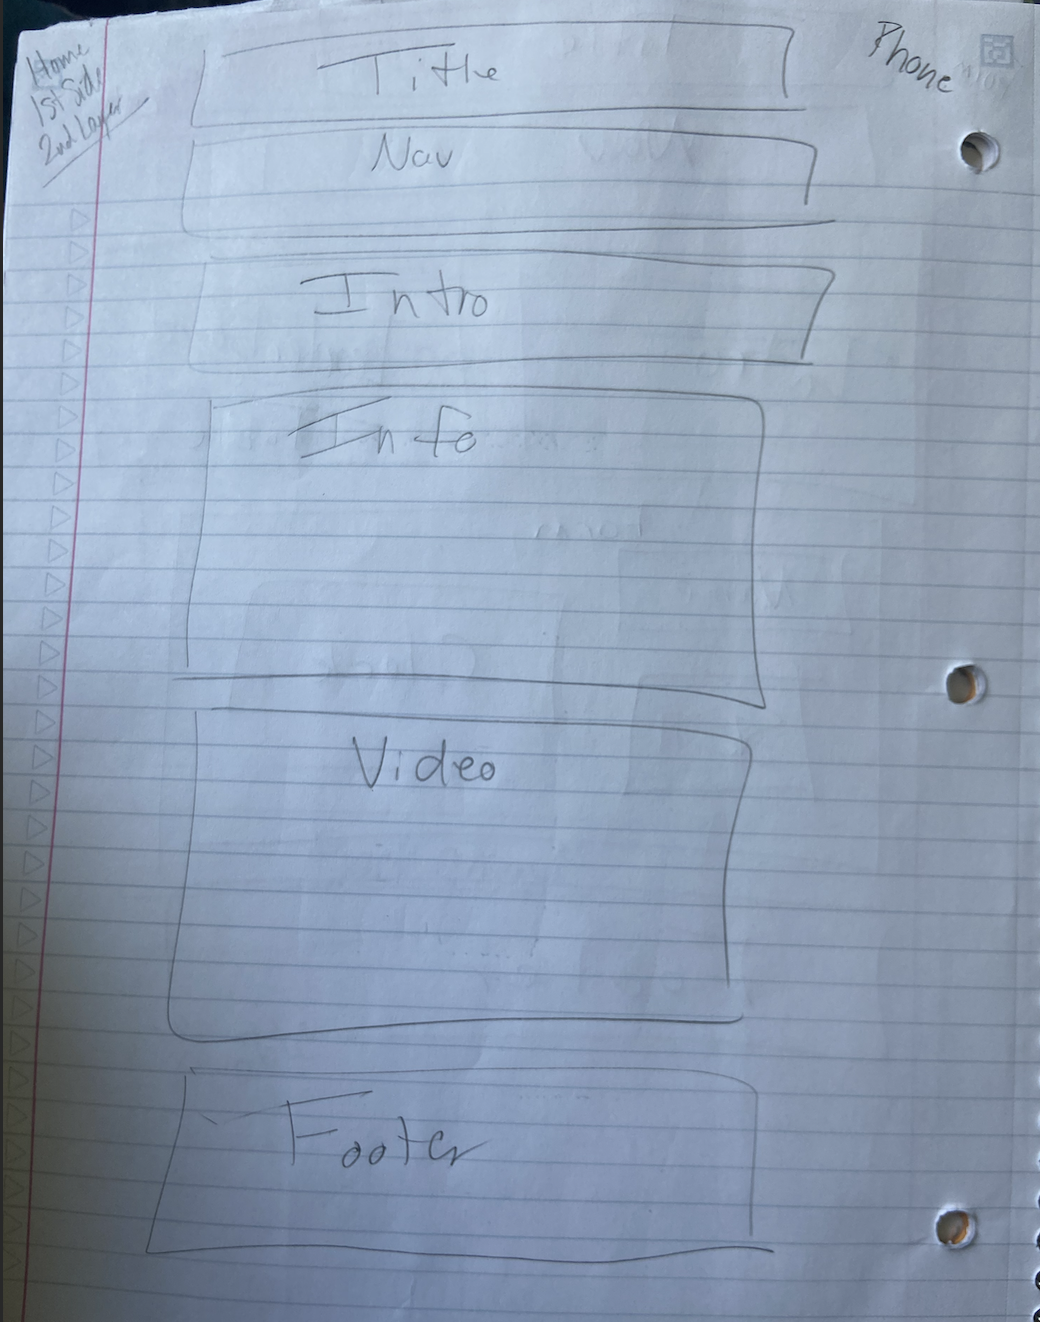 Home
1st Side
2nd Layer
Phone
Title
Nav
Intro
Info
Video
Footer